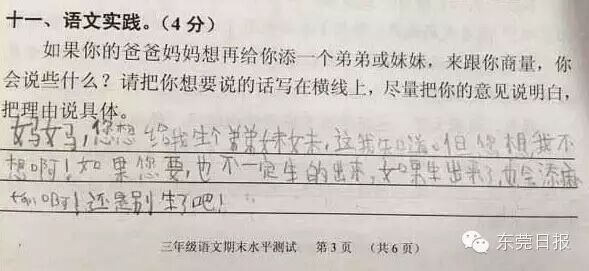 十一、语文实践。(4分)
如果你的爸爸妈妈想再给你添一个弟弟或妹妹，来跟你商量，你
会说些什么？请把你想要说的话写在横线上，尽量把你的意见说明白，
把理由说具体。
妈妈，您想给我生个弟弟妹妹，这我知道。但您想，我不
想啊！如果您要，也不一定生的出来，如果生出来了，也会添麻
烦啊！还是别生了吧！
三年级语文期末水平测试 第3页 （共6页）
东莞日报